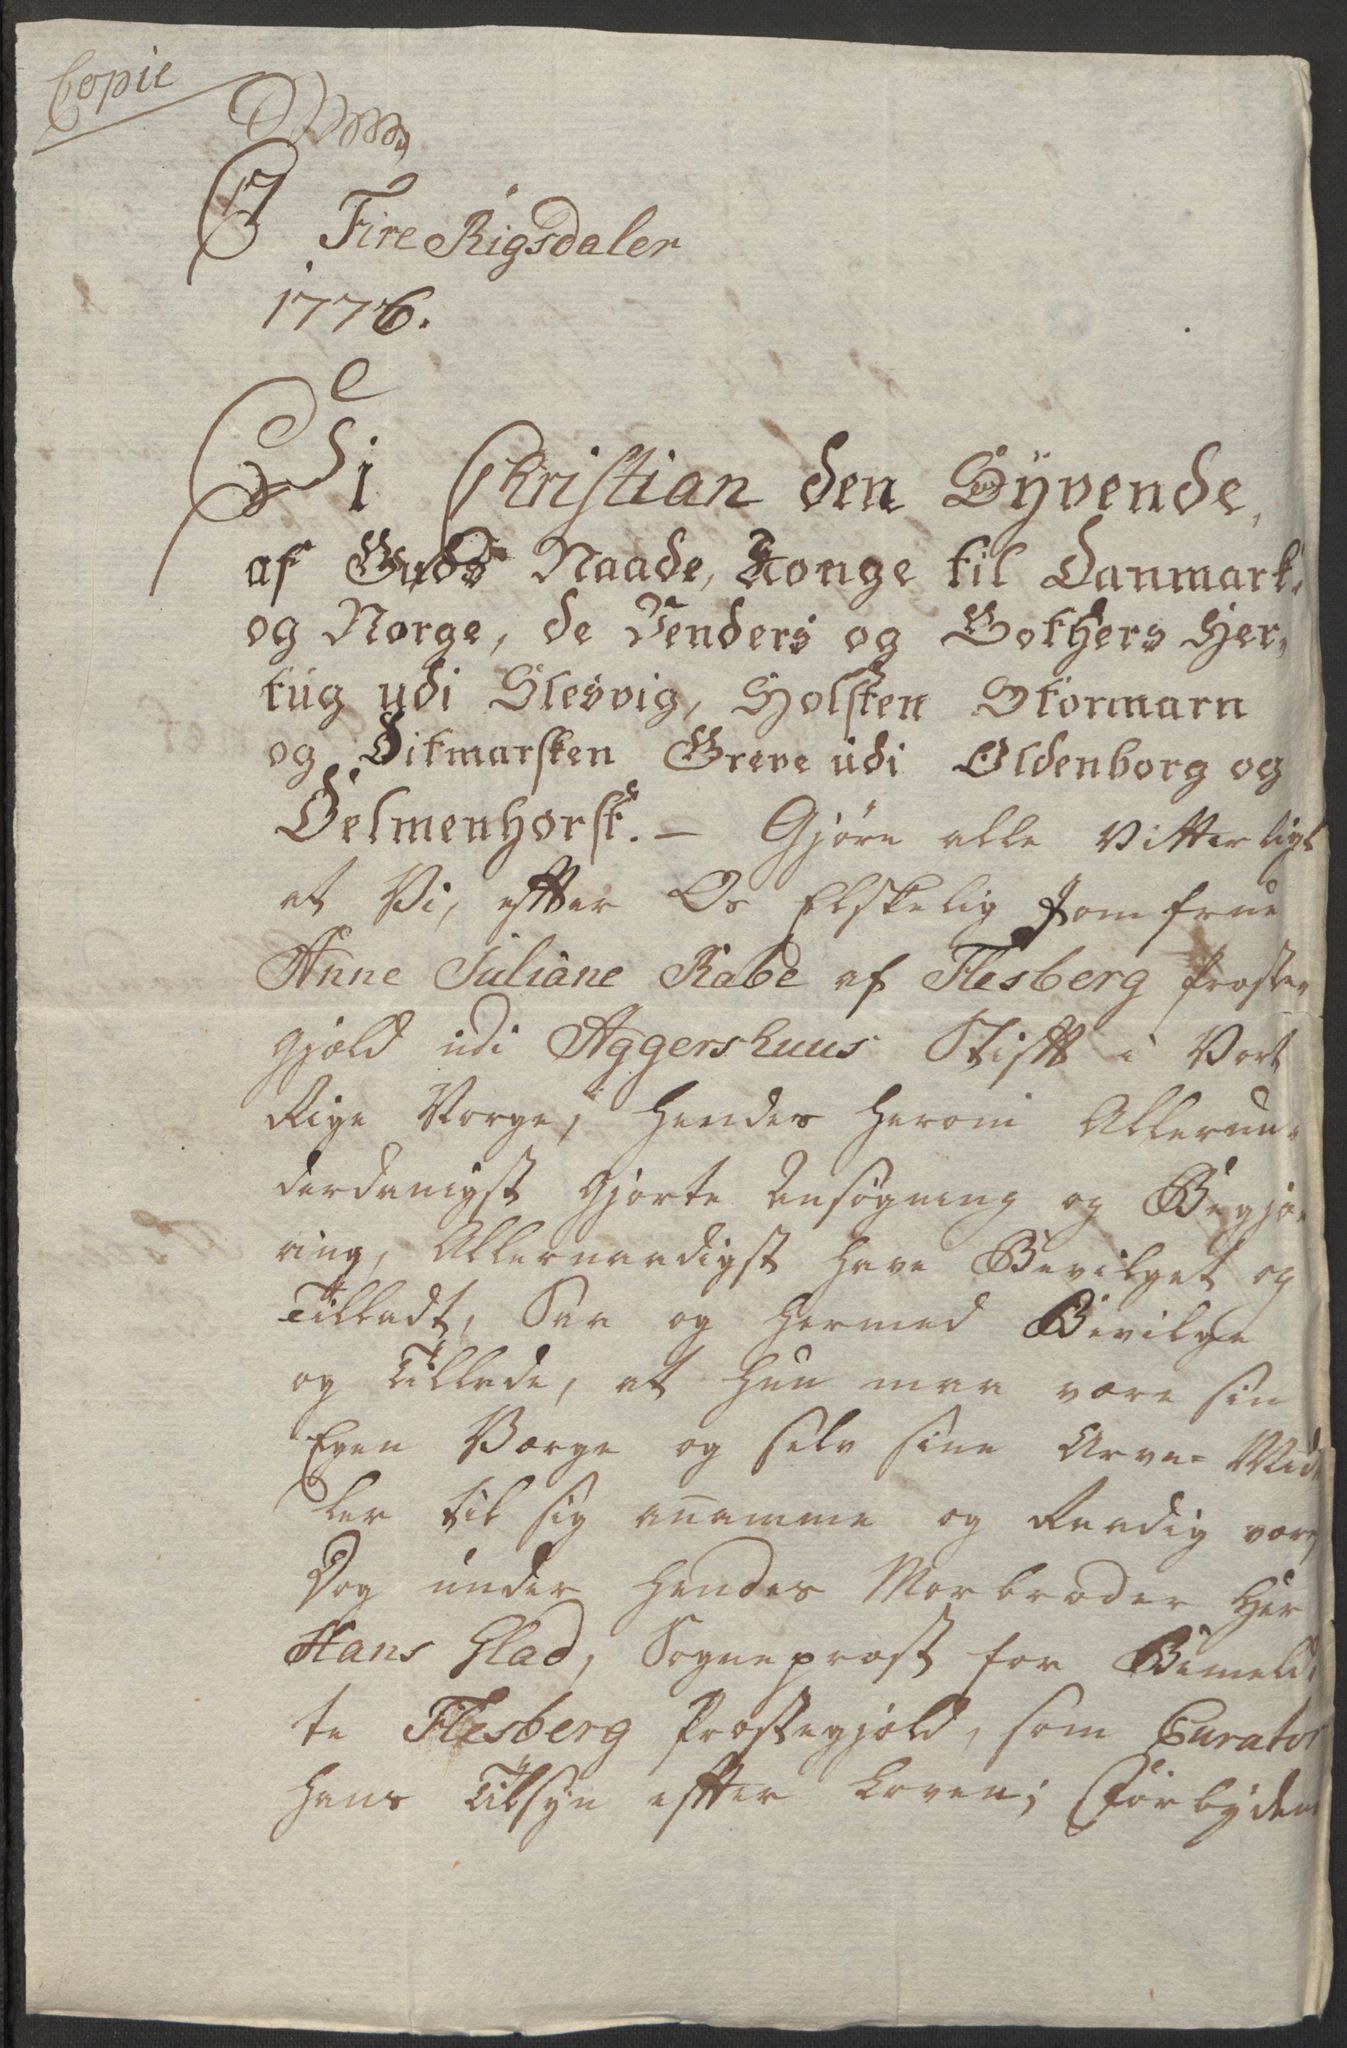 Copie
C7
Fire Rigsdaler
1776.
Vi Christian den Syvende,
af Guds Naade, Konge til Danmark
og Norge, de Venders og Gothers Her-
tug udi Slesvig, Holsten Stormarn
og Ditmarsken Greve udi Oldenborg og
Delmenhorst. — Gjøre alle Vitterligt
at Vi, efter Os Elskelig Jomfrue
Anne Juliane Rabe af Flesberg Præste-
gjæld udi Aggershuus Stift i Vort
Rige Norge, hendes herom Allerun-
derdanigst gjorte Ansøgning og Begjæ-
ring, Allernaadigst have Bevilget og
Tilladt, Saa og hermed Bevilge
og Tillade, at hun maa være sin
Egen Værge og selv sine Arve-Mid-
ler til sig annamme og Raadig være,
Dog under hendes Morbroder Her
Hans Glad, Sognepræst for Bemeld-
te Flesberg Præstegjæld, som Curator
hans Tilsyn efter Loven; Forbydende